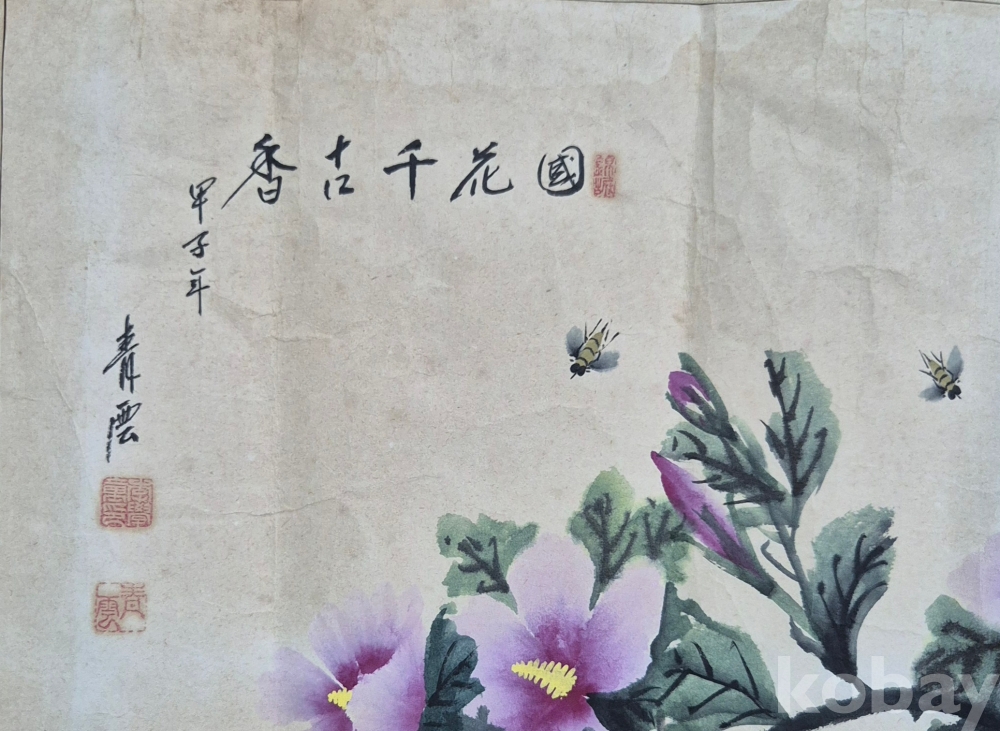 國花千古香
甲子年
青雲
kobay